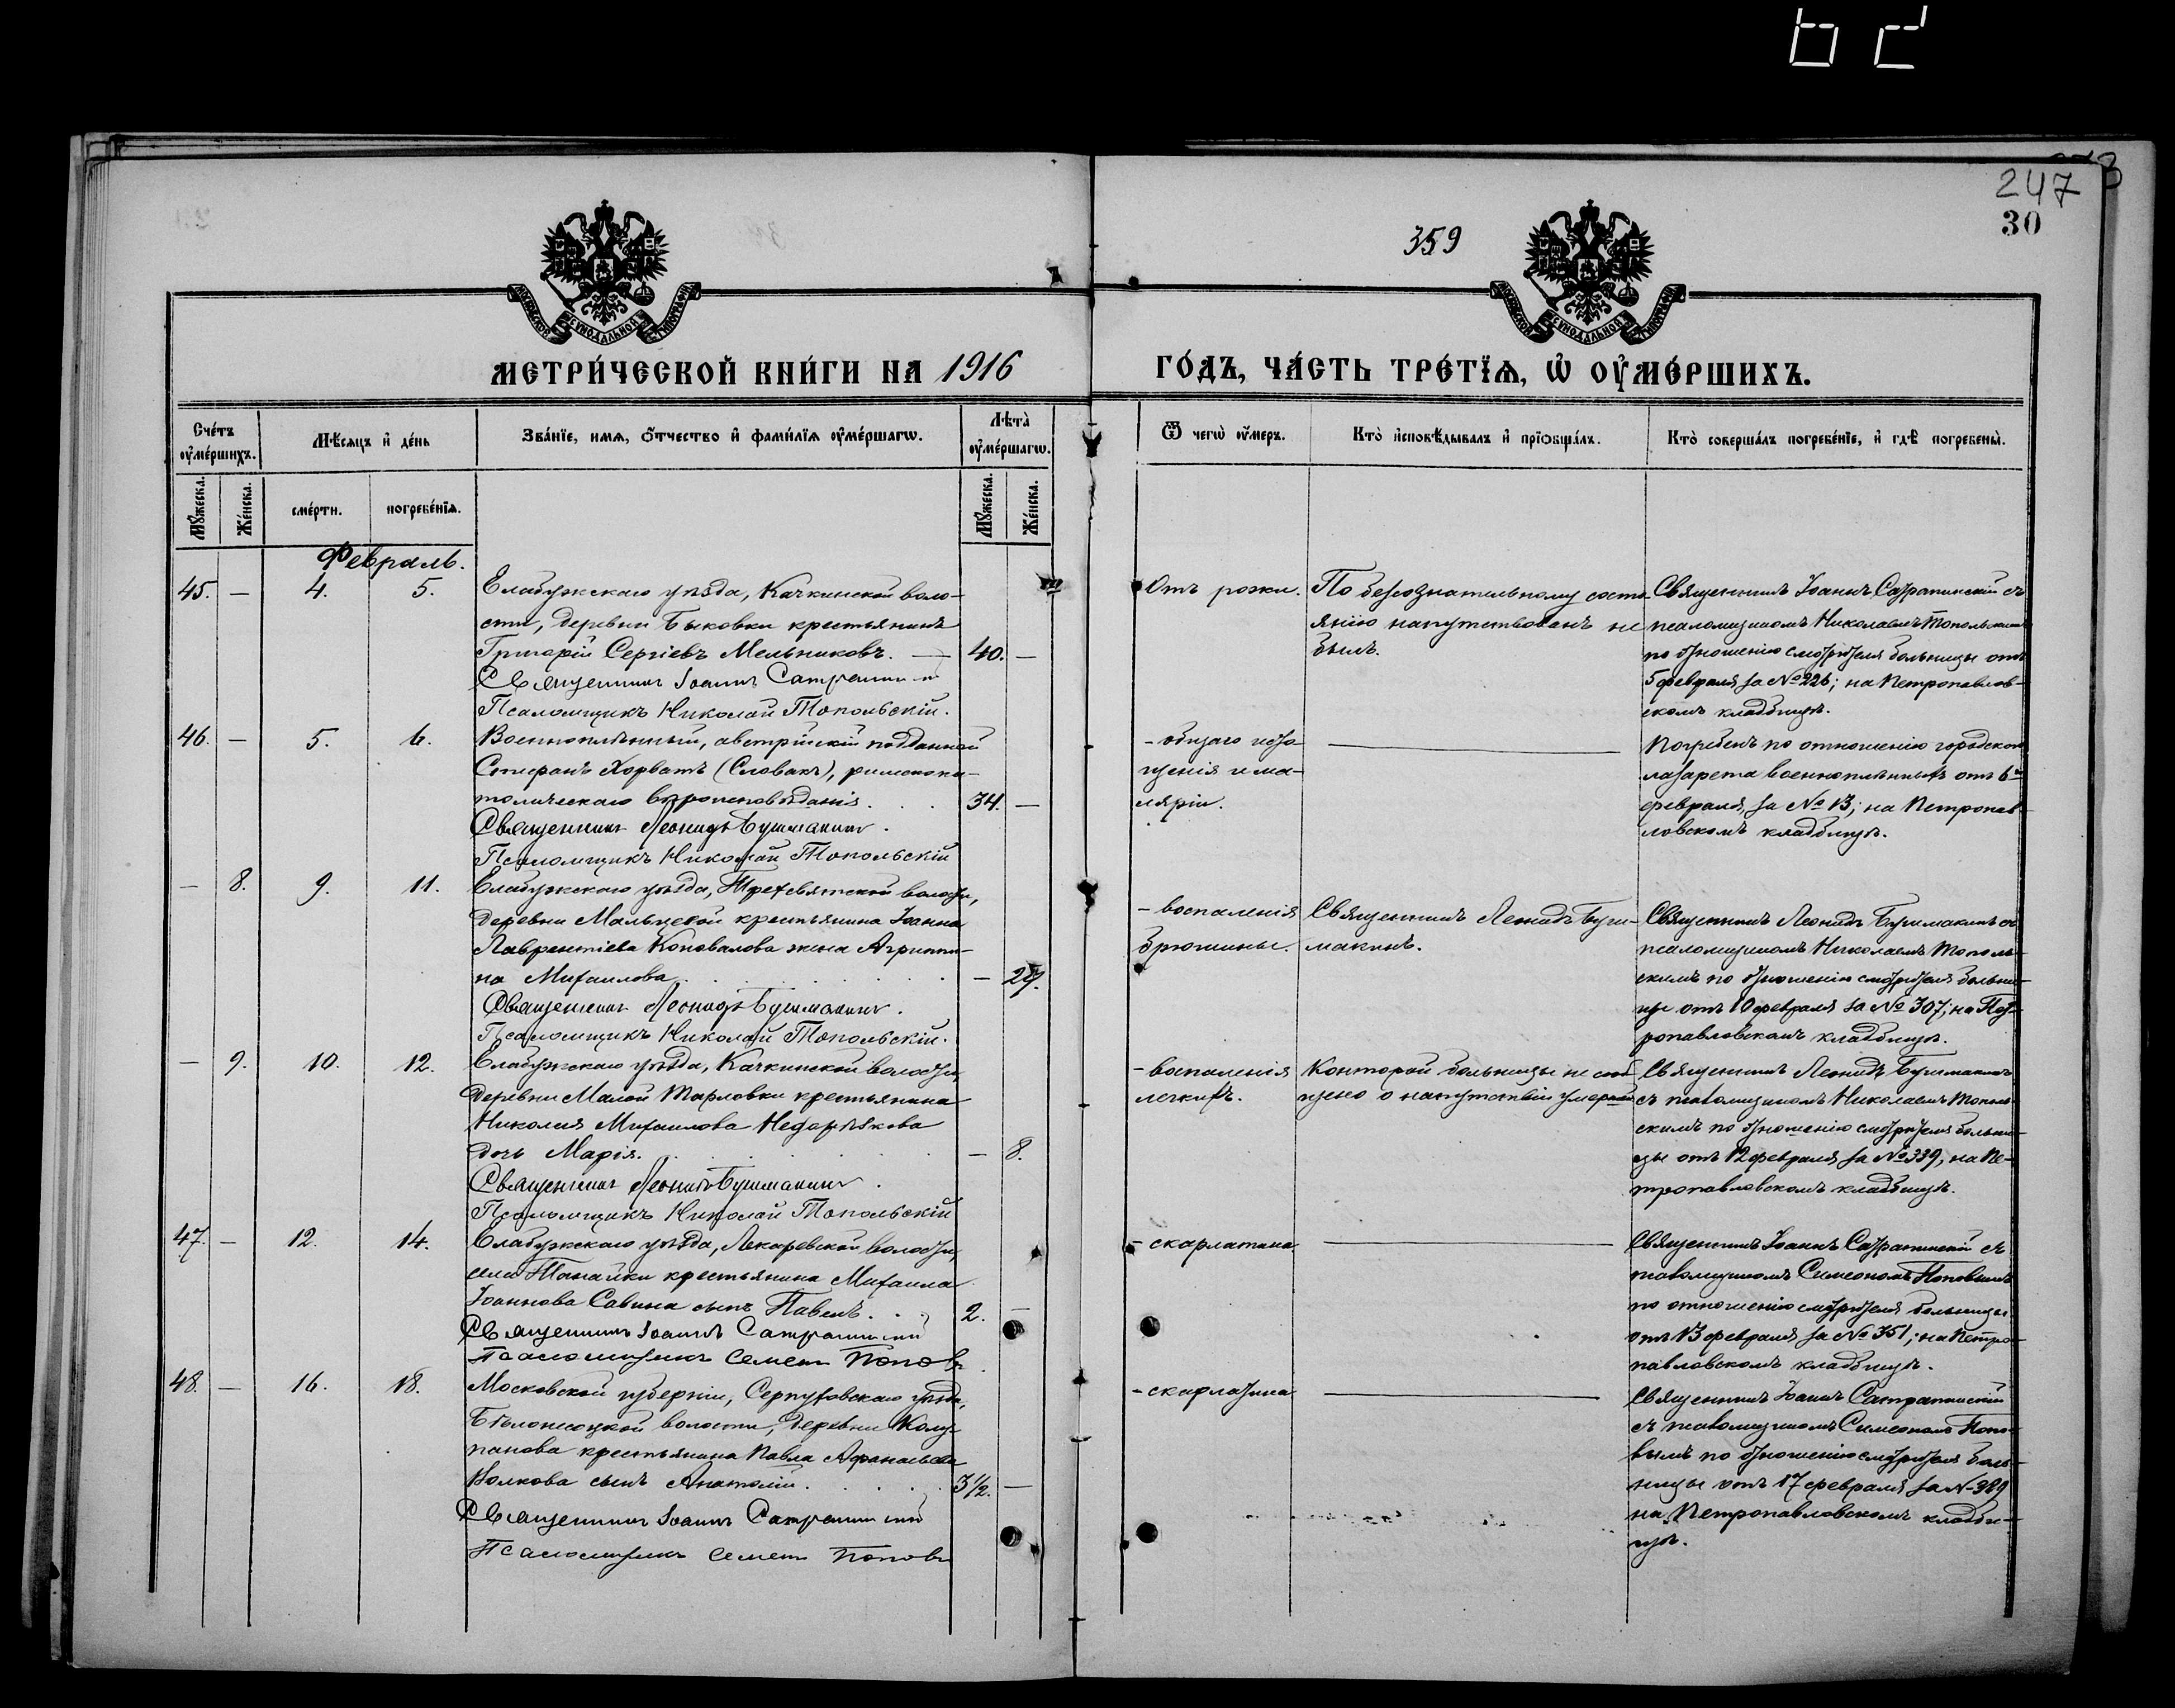 247
30
359
МЕТРИ́ЧЕСКОЙ КНИ́ГИ НА 1916 ГО́ДЪ, ЧА́СТЬ ТРЕ́ТЇѦ, Ѡ ОУ҆МЕ́РШИХЪ.
Сче́тъ оу҆ме́ршихъ.
Мѣ́сяцъ и҆ де́нь
Зва́нїе, имѧ, ѻ҆́тчество и҆ фами́лїѧ оу҆ме́ршагѡ.
Лѣта̀ оу҆ме́ршагѡ.
Ѿ чегѡ̀ оу҆́меръ.
Кто̀ и҆сповѣ́дывалъ и҆ прїѻбща́лъ.
Кто̀ соверша́лъ погребе́нїе, и҆ гдѣ̀ погребены̀.
Мꙋ́жеска.
Же́нска.
сме́рти.
погребе́нїѧ.
Мꙋ́жеска.
Же́нска.
Февраль.
45. — 4. 5.
Елабужскаго уѣзда, Качкинской воло-
сти, деревни Быковки крестьянинъ
Григорій Сергіевъ Мельниковъ. — 40. —
Священникъ Іоаннъ Сатрапинскій
Псаломщикъ Николай Топольскій.
Отъ рожи.
По безсознательному состо-
янію напутствованъ не
былъ.
Священникъ Іоаннъ Сатрапинскій съ
псаломщикомъ Николаемъ Топольскимъ
по отношенію смотрителя больницы отъ
5 февраля за № 226; на Петропавлов-
скомъ кладбищѣ.
46. — 5. 6.
Военноплѣнный, австрійскій подданный
Стефанъ Хорватъ (Словакъ), римскока-
толическаго вѣроисповѣданія. . . 34. —
Священникъ Леонидъ Бушмакинъ.
Псаломщикъ Николай Топольскій
- общаго исто-
щенія и ма-
ляріи.
Погребенъ по отношенію городского
лазарета военноплѣнныхъ отъ 6го
февраля, за № 13; на Петропав-
ловскомъ кладбищѣ.
— 8. 9. 11.
Елабужскаго уѣзда, Трехсвятской волости,
деревни Мальцевой крестьянина Іоанна
Лаврентіева Коновалова жена Агриппи-
на Михаилова. . . . — 27.
Священникъ Леонидъ Бушмакинъ.
Псаломщикъ Николай Топольскій.
- воспаленія
брюшины.
Священникъ Леонидъ Буш-
макинъ.
Священникъ Леонидъ Бушмакинъ съ
псаломщикомъ Николаемъ Тополь-
скимъ по отношенію смотрителя больни-
цы отъ 10 февраля за № 307; на Пет-
ропавловскомъ кладбищѣ.
— 9. 10. 12.
Елабужскаго уѣзда, Качкинской волости,
деревни Малой Тарловки крестьянина
Николая Михаилова
дочь Марія. . . . — 8.
Священникъ Леонидъ Бушмакинъ.
Псаломщикъ Николай Топольскій
- воспаленія
легкихъ.
Конторой больницы не сооб-
щено о напутствіи умершей
Священникъ Леонидъ Бушмакинъ
съ псаломщикомъ Николаемъ Тополь-
скимъ по отношенію смотрителя больни-
цы отъ 12 февраля за № 339, на Пе-
тропавловскомъ кладбищѣ.
47. — 12. 14.
Елабужскаго уѣзда, Лекаревской волости,
села Танайки крестьянина Михаила
Іоаннова Савина сынъ Павелъ. . . 2. —
Священникъ Іоаннъ Сатрапинскій
Псаломщикъ Семенъ Поповъ
- скарлатина
Священникъ Іоаннъ Сатрапинскій съ
псаломщикомъ Симеономъ Поповымъ
по отношенію смотрителя больницы
отъ 13 февраля за № 351; на Петро-
павловскомъ кладбищѣ.
48. — 16. 18.
Московской губерніи, Серпуховскаго уѣзда,
волости, деревни
крестьянина Павла Афанасьева
Волкова сынъ Анатолій. . . . 3 1/2. —
Священникъ Іоаннъ Сатрапинскій
Псаломщикъ Семенъ Поповъ
- скарлатина
Священникъ Іоаннъ Сатрапинскій
съ псаломщикомъ Симеономъ Попо-
вымъ по отношенію смотрителя боль-
ницы отъ 17 февраля за № 389
на Петропавловскомъ кладби-
щѣ.